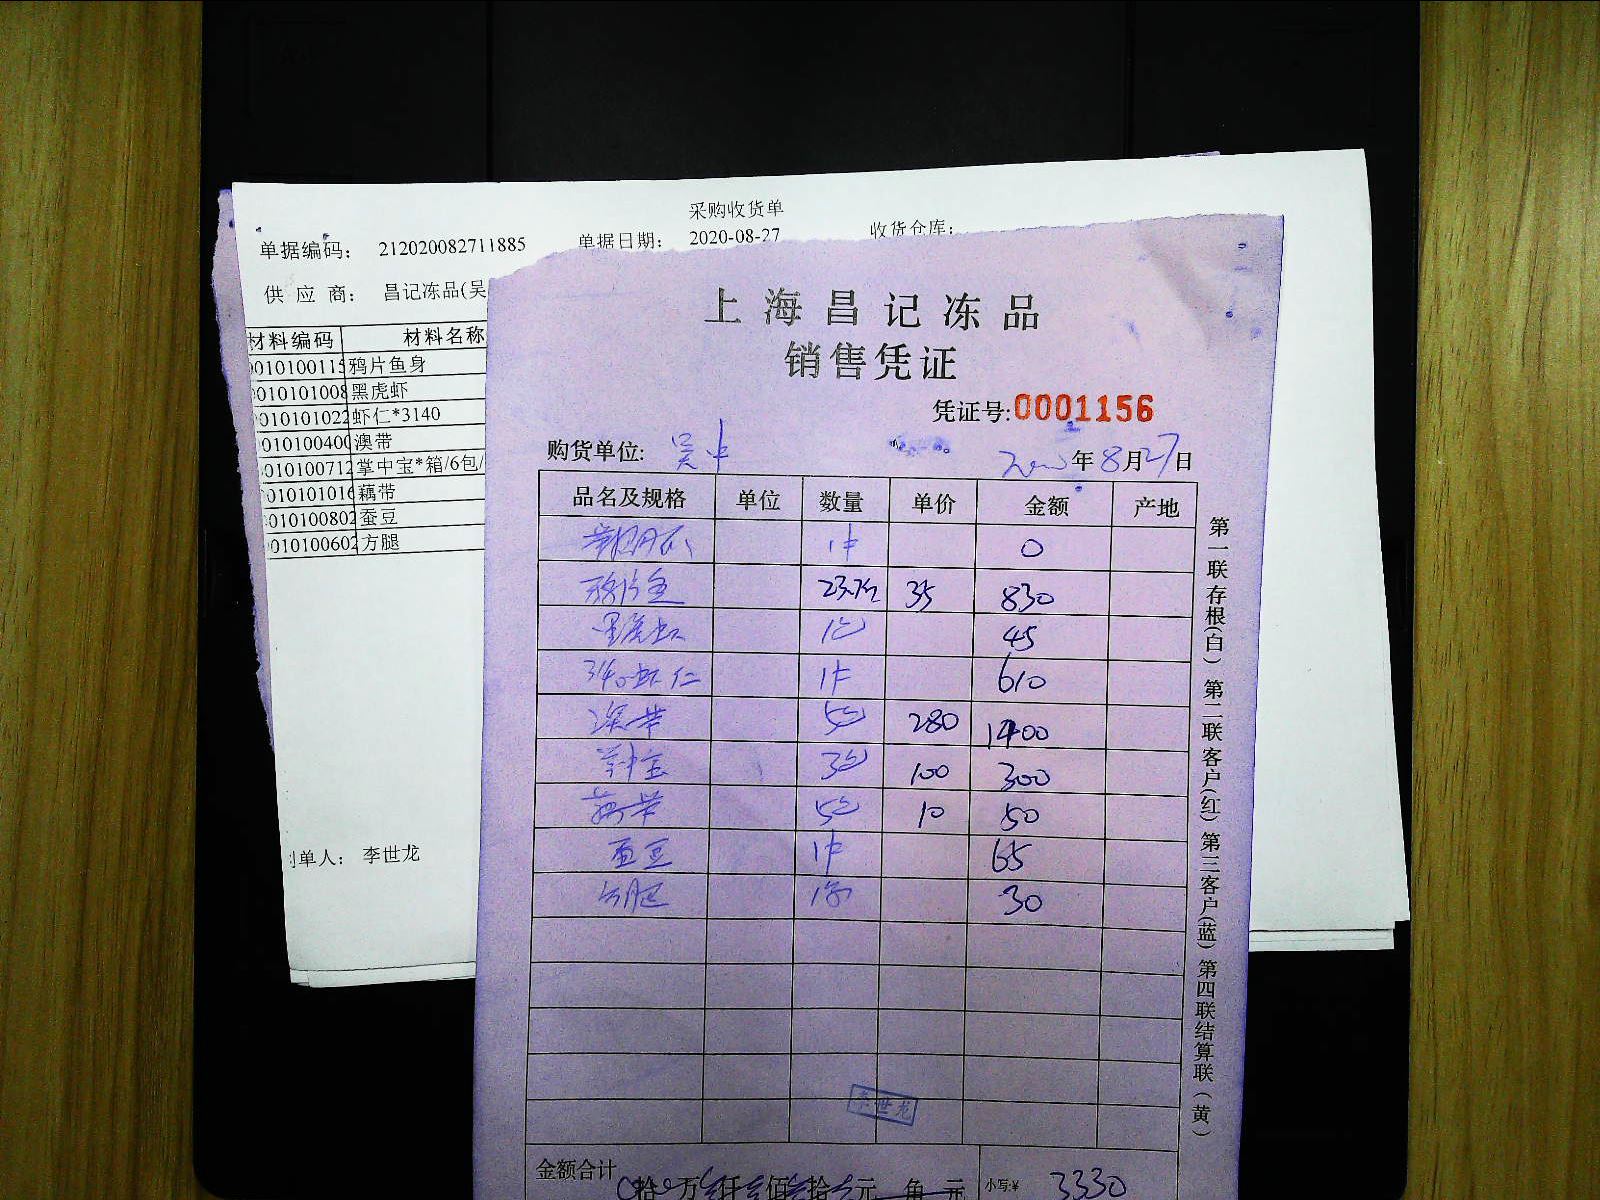 采购收货单
单据编码： 212020082711885 单据日期： 2020-08-27 收货仓库：
供 应 商： 昌记冻品(吴
材料编码 材料名称
010100115 鸦片鱼身
010101008 黑虎虾
010101022 虾仁*3140
010100400 澳带
010100712 掌中宝*箱/6包/
010101016 藕带
010100802 蚕豆
010100602 方腿
制单人： 李世龙
上海昌记冻品
销售凭证
凭证号:0001156
购货单位: 吴中 年8月27日
品名及规格 单位 数量 单价 金额 产地
1件 0
鸦片鱼 35 830
黑虎虾 1包 45
3140虾仁 1件 610
澳带 5包 280 1400
掌中宝 3包 100 300
藕带 5包 10 50
蚕豆 1件 65
方腿 30
李世龙
金额合计 拾 万 仟 佰 拾 元 角 元 小写:¥ 3330
第一联存根(白) 第二联客户(红) 第三客户(蓝) 第四联结算联(黄)